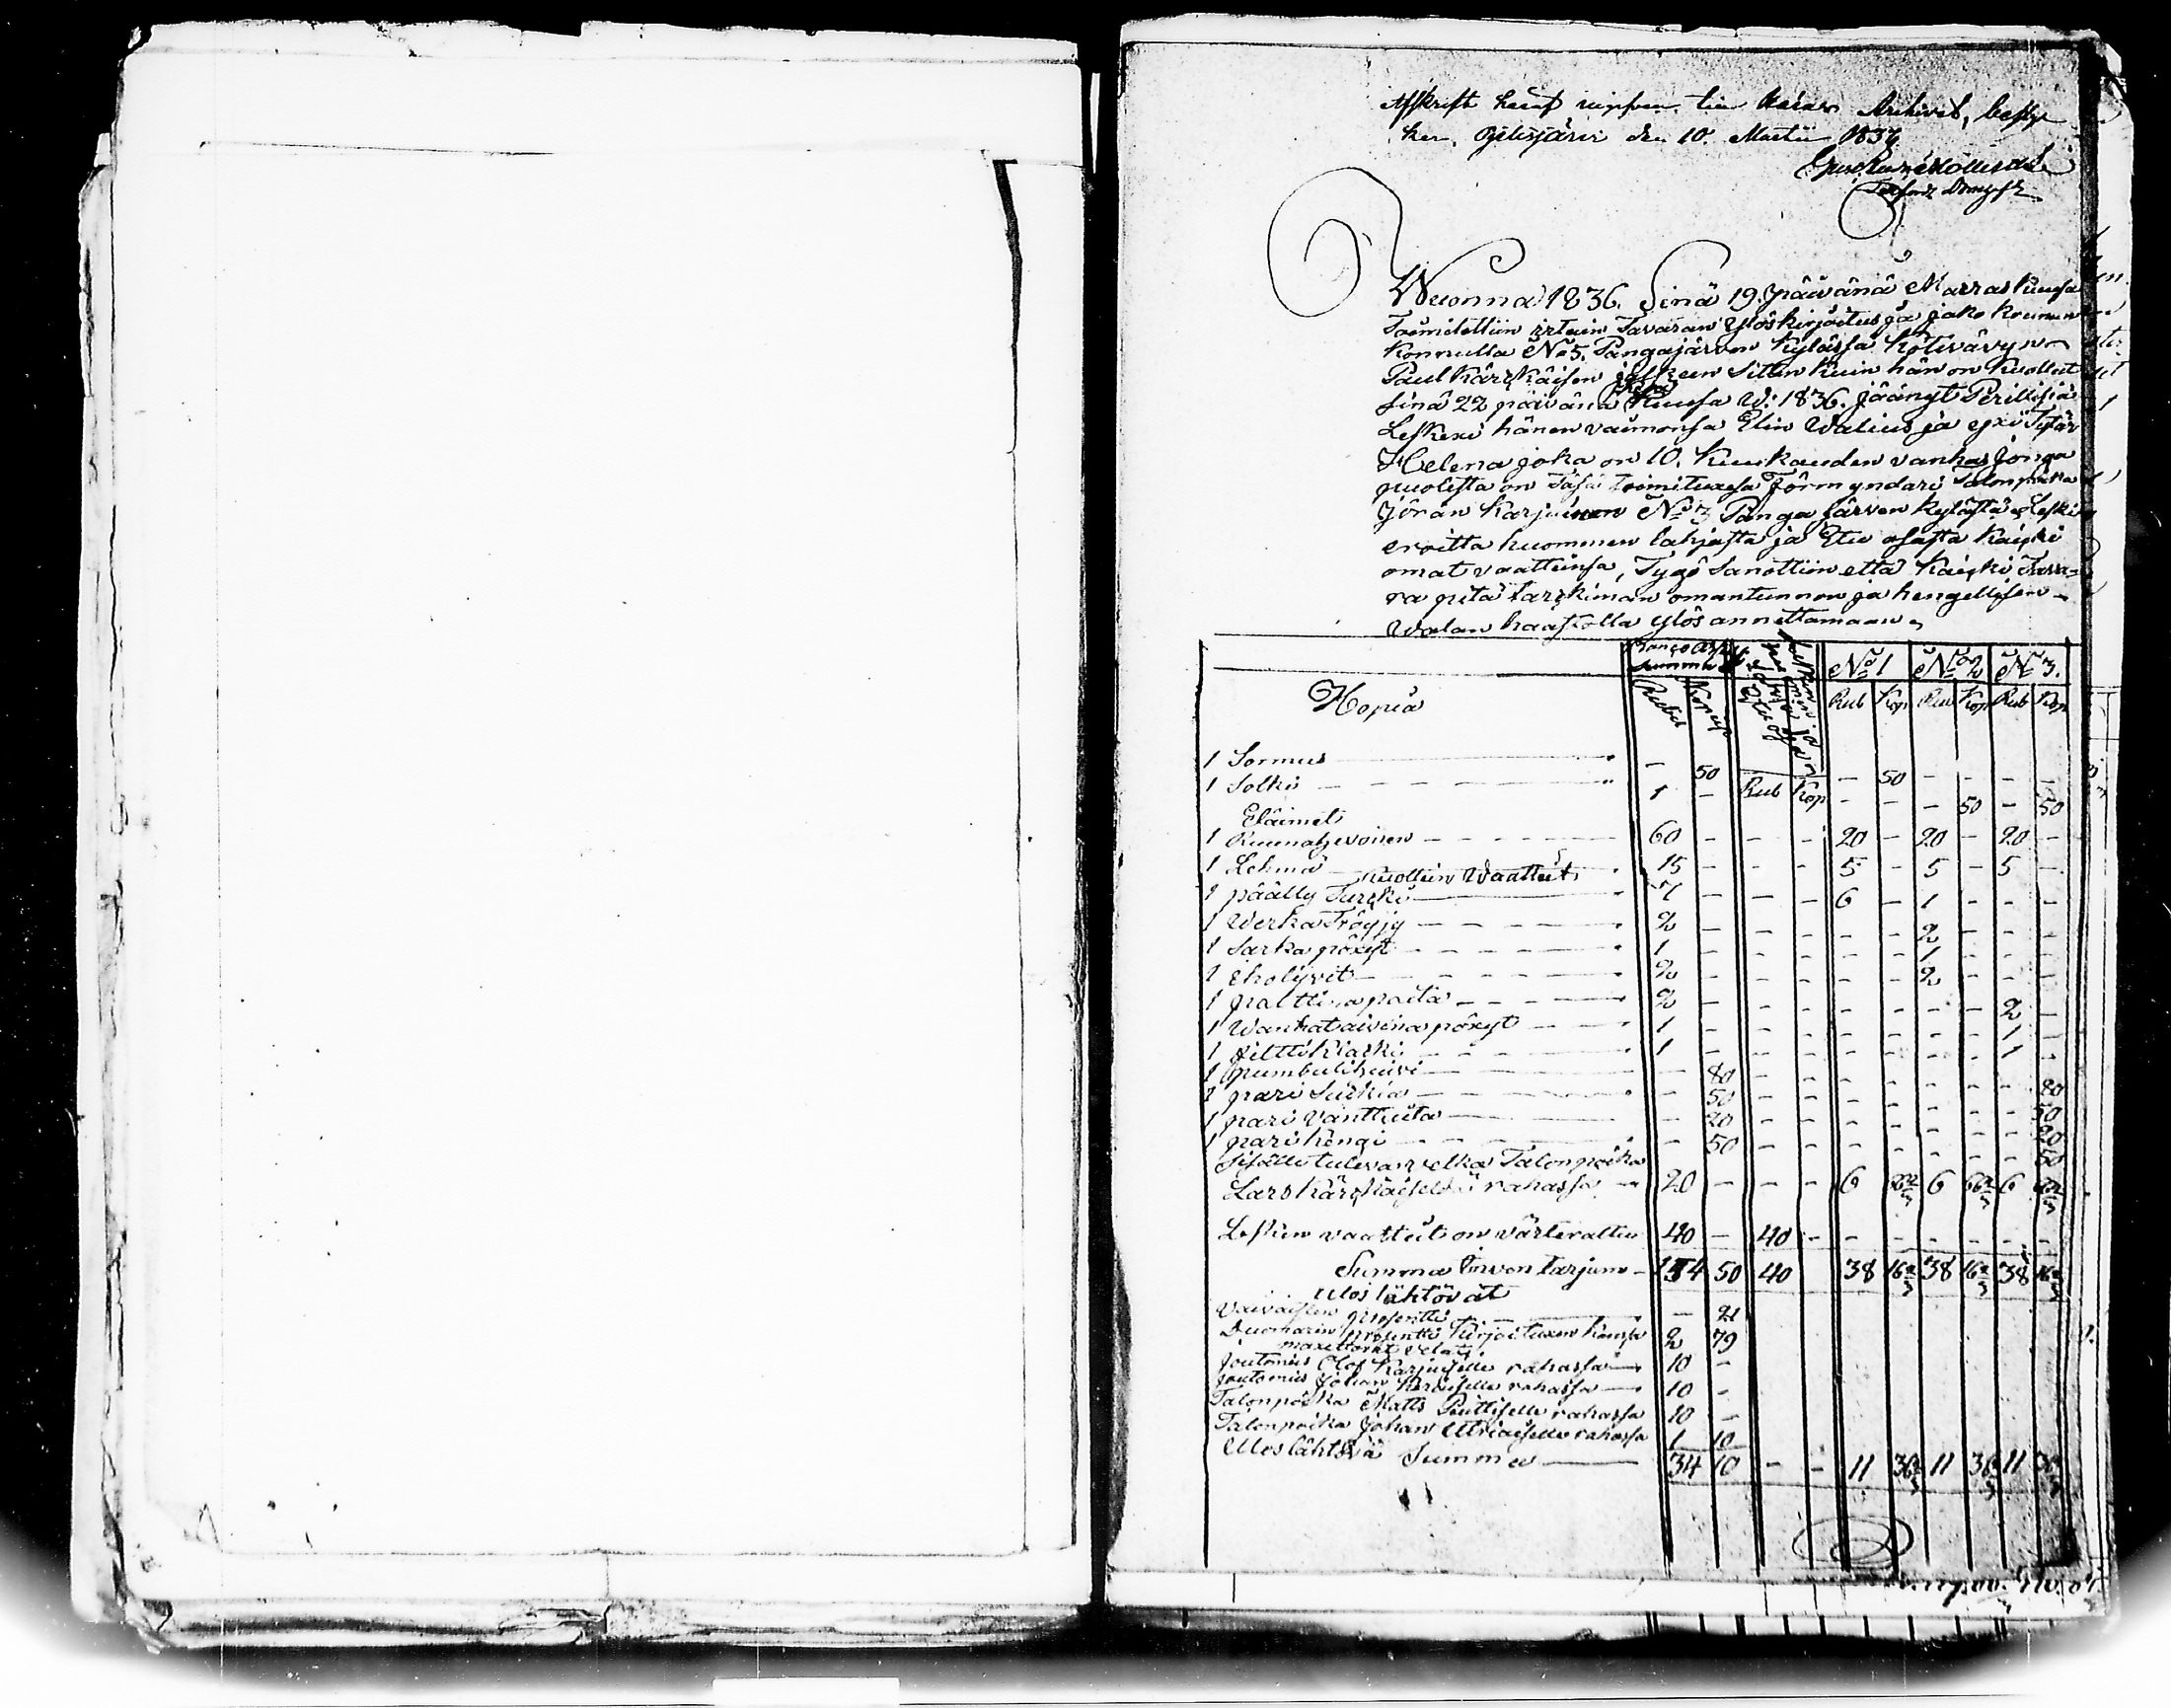 Afskrift häraf Archivet,
den 10. Martii 1837
Wuonna 1836. Sinä 19. päivänä Marraskuusa
Toimitettiin irtain Tavaran Ylöskirjoitus ja jako kruunun
Konnulla No 5. Pangajärven Kylässä Kotivävyn
Paul Kärkkäisen jälkeen Sitten kuin hän on Kuollut
sinä 22 päivänä Kuusa W: 1836. jäänyt Perillisiä
Leskexi hänen vaimonsa Elin Walius ja yxi Tytär
Helena joka on 10. Kuukauden vanha jonga
puolesta on Tässä toimituxesa Förmyndari Talonpoika
Jöran Karjuinen No 3 Pangajärven kylästä Leski
eroitta huommen lahjasta ja Etu osasta Kaicki
omat vaatteinsa, Tygö Sanottiin että Kaicki Tava=
ra pitä tarckiman omantunnon ja hengellisen
Walan haastolla ylös annettamaan
Banco Ass:
Summa No 1 No 2 No 3.
Hopia Rubla Kopeik Rub Kop Rub Kop Rub Kop
1 Sormus — 50 — 50 — — — —
1 Solki 1 — Rub Kop — — — 50 — 50
Eläimet
1 Ruunahevoinen 60 — — — 20 — 20 — 20 —
1 Lehmä 15 — — — 5 — 5 — 5 —
Kuollun Waatteet
1 päälly Turcki 7 — — — 6 — 1 — — —
1 Werka Tröyjy 2 — — — — — 2 — — —
1 Sarka pöxyt 1 — — — — — 1 — — —
1 2 — — — — — 2 — — —
1 palttina paita 2 — — — — — — — 2 —
1 Wanhat aivina pöxyt 1 — — — — — — — 1 —
1 1 — — — — — — — 1 —
1 pumbuli huivi — 80 — — — — — — — 80
1 pari Sukkia — 50 — — — — — — — 50
1 pari vanttuita — 20 — — — — — — — 20
1 pari kengi — 50 — — — — — — — 50
Sisälle tuleva velka Talonpoika
Lars Kärkkäiseldä rahassa 20 — — — 6 66 2/3 6 66 2/3 6 66 2/3
Lesken vaatteet on värterattu 40 — 40 — — — — — — —
Summa inventarjum 154 50 40 38 16 2/3 38 16 2/3 38 16 2/3
Ulos lähtövät
Vaivaisten prosentti — 21
Duomarin prosentti kirjoituxen kansa 2 79
maxettavat velat
Joutomies Olof Karjuselle rahassa 10 —
Joutomies Johan rahassa 10 —
Talonpoika Matts Puittiselle rahassa 10 —
Talonpoika Johan rahassa 1 10
Ulos lähtövä Summa 34 10 — — 11 36 2/3 11 36 2/3 11 36 2/3